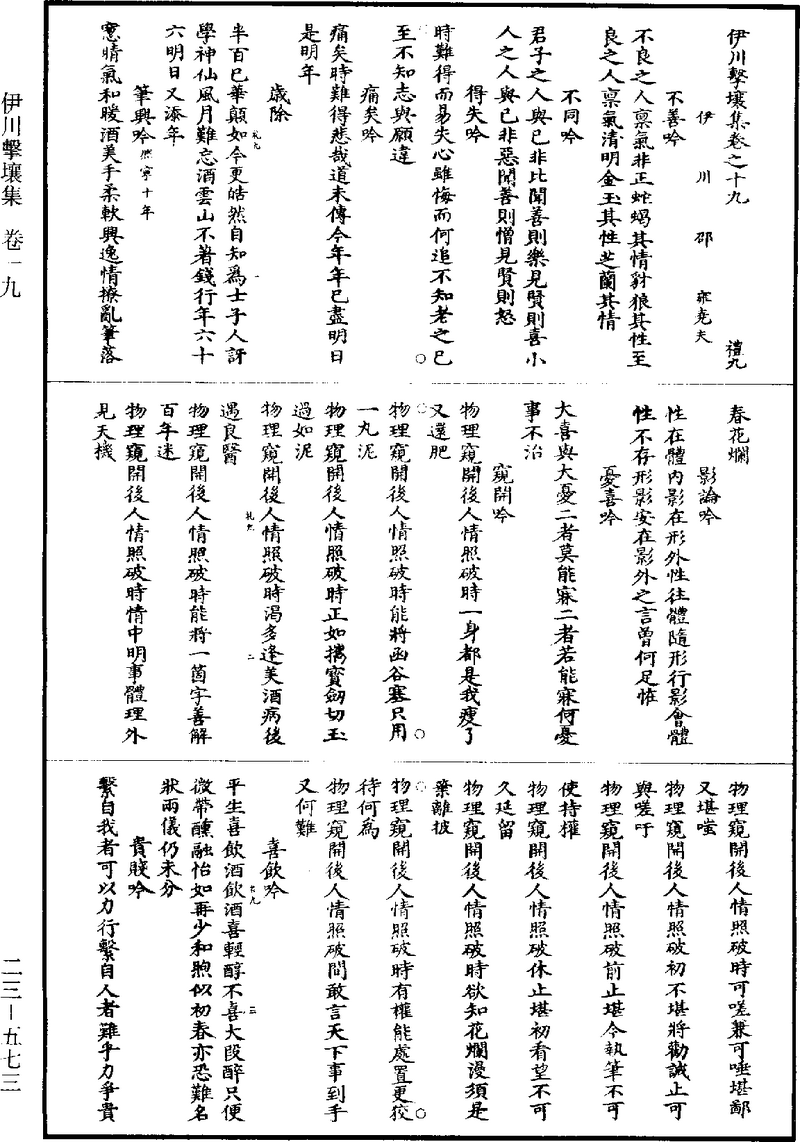 伊川擊壤集卷之十九
伊川邵雍堯夫
禮九
不善吟
不良之人禀氣非正蛇蝎其情豺狼其性至
良之人禀氣清明金玉其性芝蘭其情
不同吟
君子之人與己非比聞善則樂見賢則喜小
人之人與己非惡聞善則憎見賢則怒
得失吟
時難得而易失心雖悔而何追不知老之已
至不知志與願違
痛矣吟
痛矣時難得悲哉道未傳今年年已盡明日
是明年
歲除
半百已華顛如今更皓然自知為士子人訝
學神仙風月難忘酒雲山不著錢行年六十
六明日又添年
筆興吟熙寧十年
窻晴氣和暖酒美手柔軟興逸情撩亂筆落
春花爛
影論吟
性在體內影在形外性往體隨形行影會體
性不存形影安在影外之言曾何足恠
憂喜吟
大喜與大憂二者莫能寐二者若能寐何憂
事不治
窺開吟
物理窺開後人情照破時一身都是我瘦了
又還肥
物理窺開後人情照破時能將函谷塞只用
一丸泥
物理窺開後人情照破時正如攜寶劒切玉
過如泥
物理窺開後人情照破時渴多逢美酒病後
遇良醫
物理窺開後人情照破時能將一箇字善解
百年迷
物理窺開後人情照破時情中明事體理外
見天機
物理窺開後人情照破時可嗟兼可唾堪鄙
又堪嗤
物理窺開後人情照破初不堪將勸誡止可
與嗟吁
物理窺開後人情照破前止堪令執筆不可
使持權
物理窺開後人情照破休止堪初看望不可
久延留
物理窺開後人情照破時欲知花爛漫須是
葉離披
物理窺開後人情照破時有權能處置更狡
待何為
物理窺開後人情照破間敢言天下事到手
又何難
喜飲吟
平生喜飲酒飲酒喜輕醇不喜大段醉只便
微帶醺融怡如再少和煦似初春亦恐難名
狀兩儀仍未分
貴賤吟
繫自我者可以力行繫自人者難乎力爭貴
伊川擊壤集 卷一九
二三－五七三